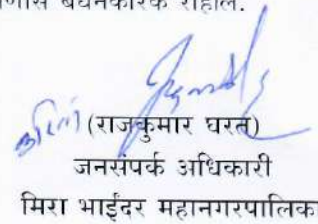 बंधनकारक राहील.
(राजकुमार घरत)
जनसंपर्क अधिकारी
मिरा भाईंदर महानगरपालिका